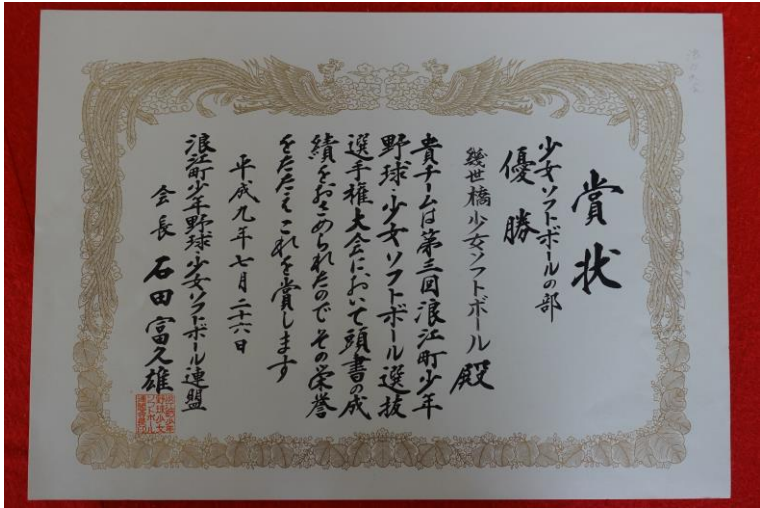 賞状
少女ソフトボールの部
優勝
幾世橋少女ソフトボール殿
貴チームは第三回浪江町少年
野球・少女ソフトボール選抜
選手権大会において頭書の成
績をおさめられたのでその栄誉
をたたえこれを賞します
平成九年七月二十六日
浪江町少年野球・少女ソフトボール連盟
会長 石田富久雄